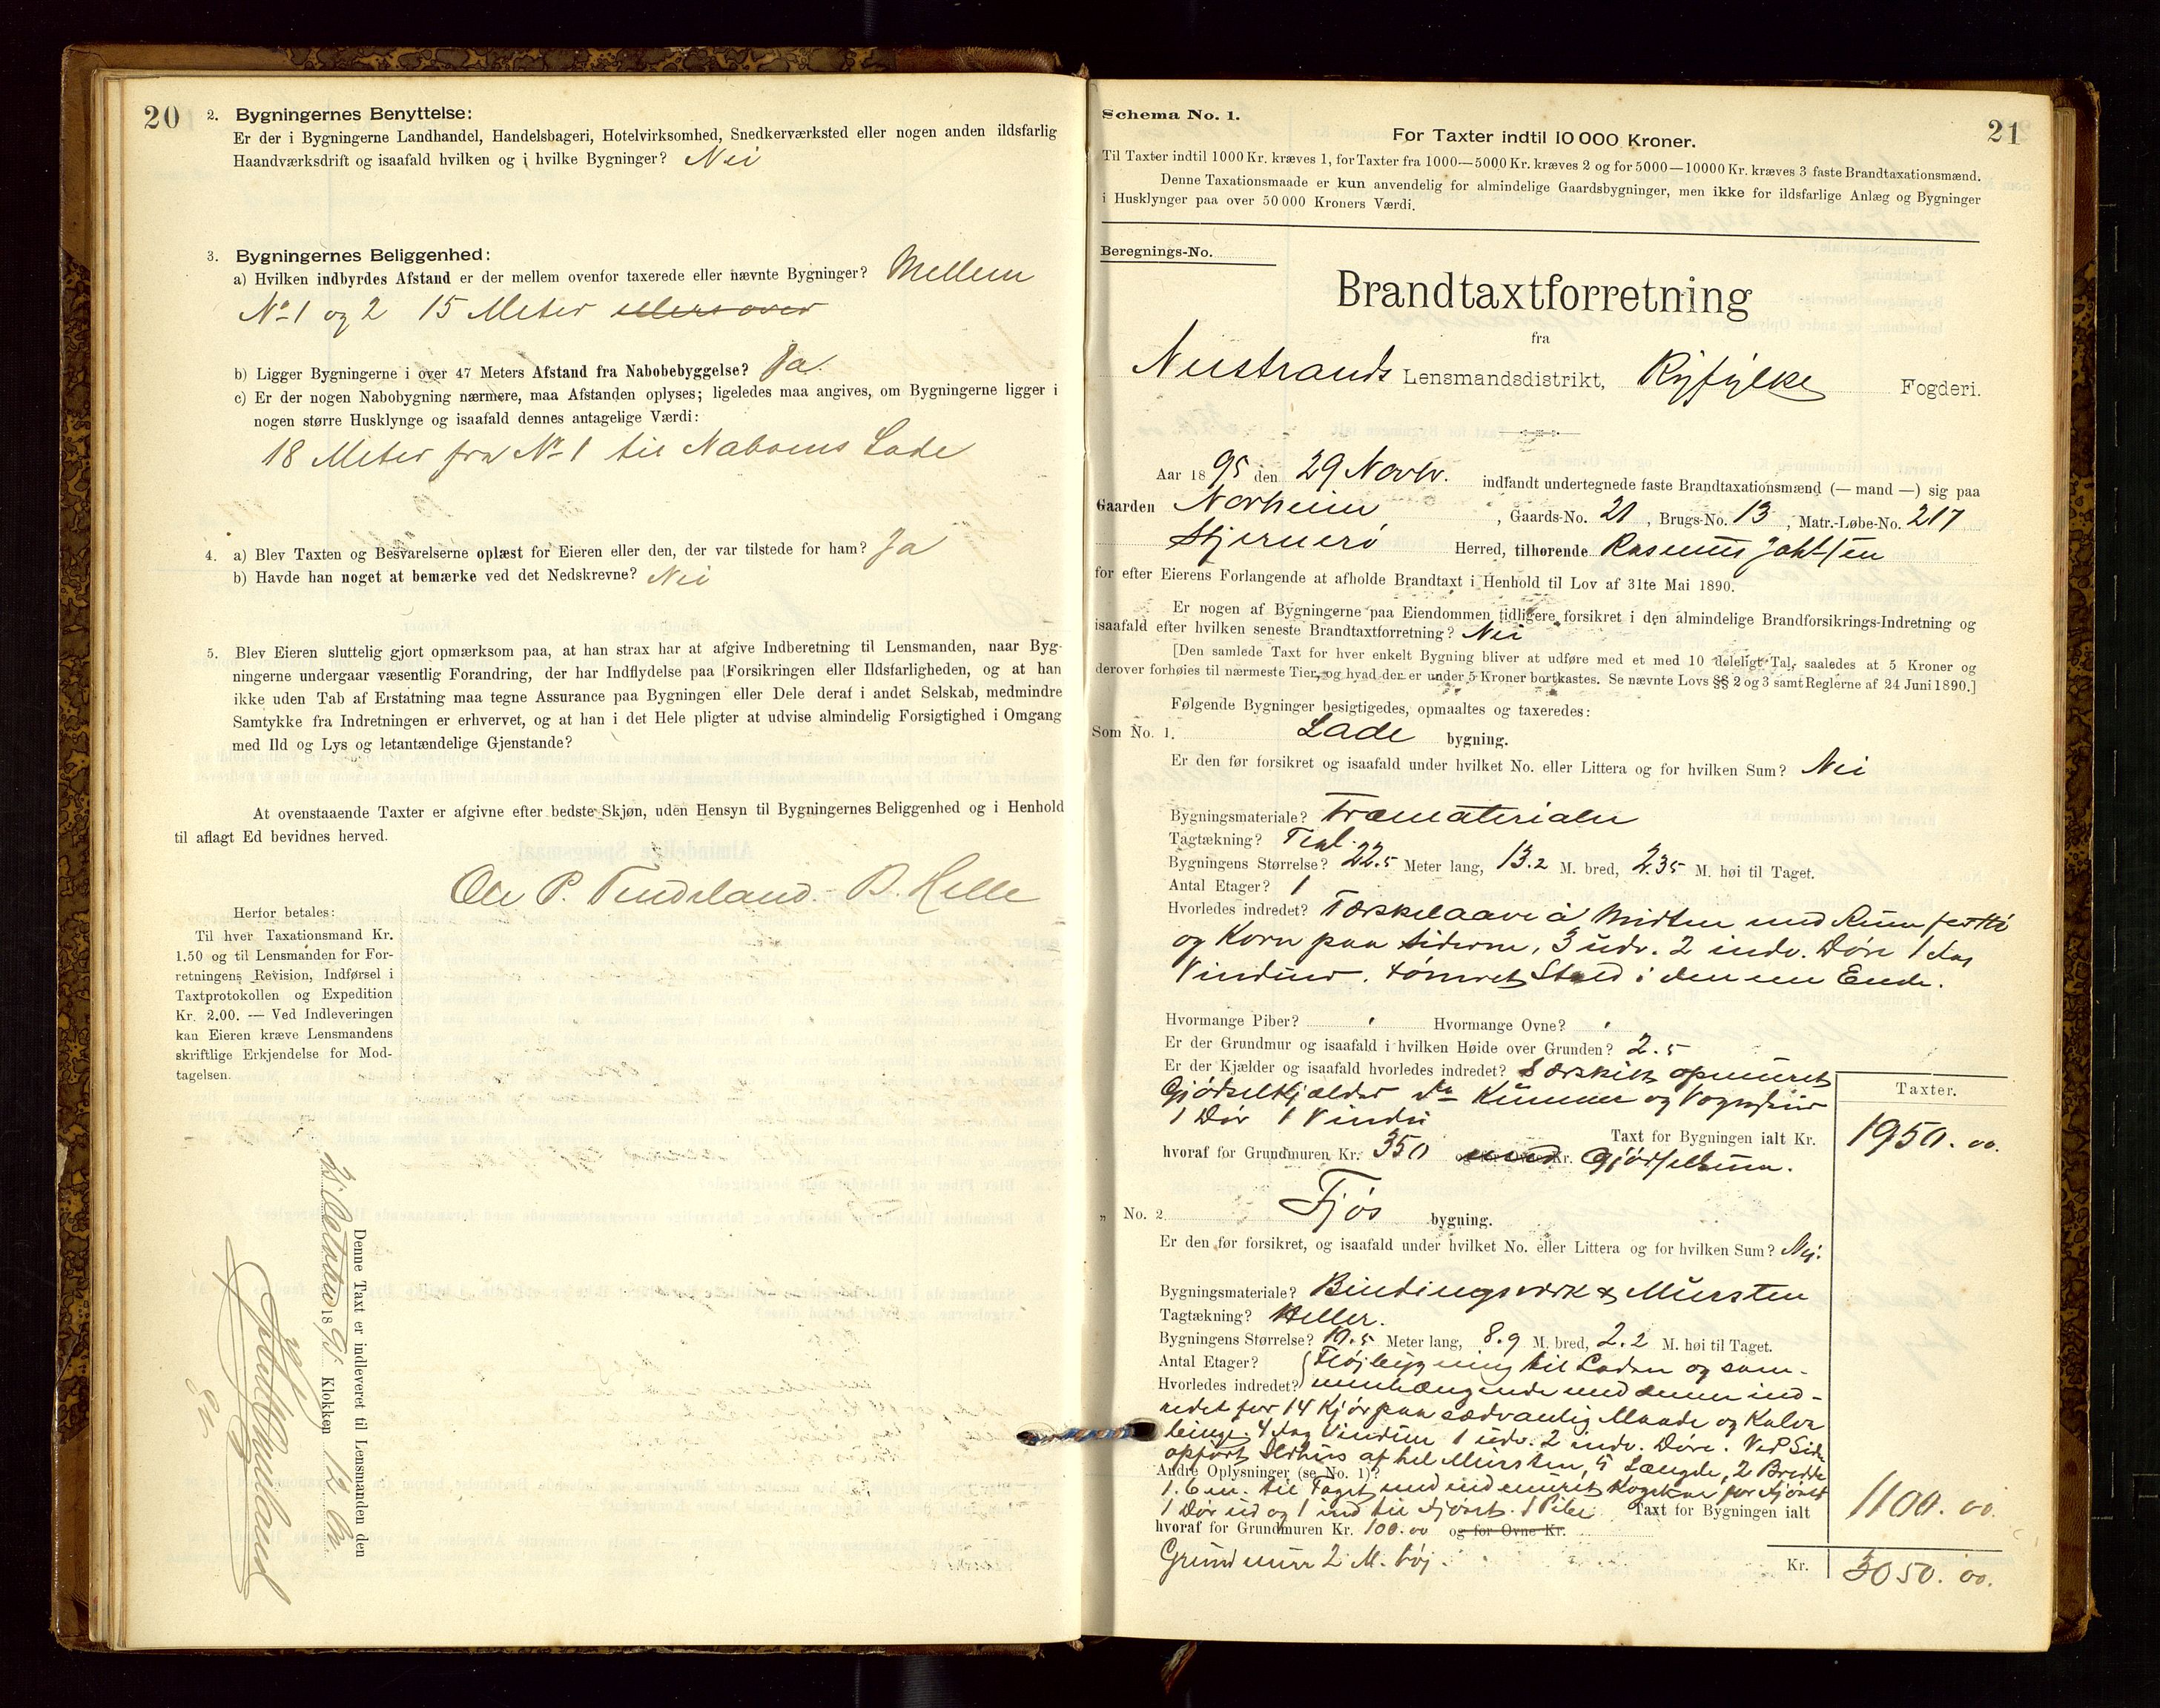 20
2. Bygningernes Benyttelse:
Er der i Bygningerne Landhandel, Handelsbageri, Hotelvirksomhed, Snedkerværksted eller nogen anden ildsfarlig
Haandværksdrift og isaafald hvilken og i hvilke Bygninger? Nei
3. Bygningernes Beliggenhed:
a) Hvilken indbyrdes Afstand er der mellem ovenfor taxerede eller nævnte Bygninger? Mellem
No 1 og 2 15 Meter
b) Ligger Bygningerne i over 47 Meters Afstand fra Nabobebyggelse? Ja.
c) Er der nogen Nabobygning nærmere, maa Afstanden oplyses; ligeledes maa angives, om Bygningerne ligger i
nogen større Husklynge og isaafald dennes antagelige Værdi:
18 Meter fra No 1 til Naboens Lade
4. a) Blev Taxten og Besvarelserne oplæst for Eieren eller den, der var tilstede for ham? Ja
b) Havde han noget at bemærke ved det Nedskrevne? Nei
5. Blev Eieren sluttelig gjort opmærksom paa, at han strax har at afgive Indberetning til Lensmanden, naar Byg-
ningerne undergaar væsentlig Forandring, der har Indflydelse paa Forsikringen eller Ildsfarligheden, og at han
ikke uden Tab af Erstatning maa tegne Assurance paa Bygningen eller Dele deraf i andet Selskab, medmindre
Samtykke fra Indretningen er erhvervet, og at han i det Hele pligter at udvise almindelig Forsigtighed i Omgang
med Ild og Lys og letantændelige Gjenstande?
At ovenstaaende Taxter er afgivne efter bedste Skjøn, uden Hensyn til Bygningernes Beliggenhed og i Henhold
til aflagt Ed bevidnes herved.
Ole P. Tendeland. B. Helle
Herfor betales:
Til hver Taxationsmand Kr.
1.50 og til Lensmanden for For-
retningens Revision, Indførsel i
Taxtprotokollen og Expedition
Kr. 2.00. — Ved Indleveringen
kan Eieren kræve Lensmandens
skriftlige Erkjendelse for Mod-
tagelsen.
Denne Taxt er indleveret til Lensmanden den
Oktober 1895 Klokken 12
21
Schema No. 1.
For Taxter indtil 10 000 Kroner.
Til Taxter indtil 1000 Kr. kræves 1, for Taxter fra 1000—5000 Kr. kræves 2 og for 5000—10000 Kr. kræves 3 faste Brandtaxationsmænd.
Denne Taxationsmaade er kun anvendelig for almindelige Gaardsbygninger, men ikke for ildsfarlige Anlæg og Bygninger
i Husklynger paa over 50 000 Kroners Værdi.
Beregnings-No.
Brandtaxtforretning
fra
Neistrands Lensmandsdistrikt, Ryfylke Fogderi.
Aar 1895 den 29 Novbr. indfandt undertegnede faste Brandtaxationsmænd (— mand —) sig paa
Gaarden Norheim, Gaards-No. 21, Brugs-No. 13, Matr.-Løbe-No. 217
Stjernerö Herred, tilhørende Rasmus
for efter Eierens Forlangende at afholde Brandtaxt i Henhold til Lov af 31te Mai 1890.
Er nogen af Bygningerne paa Eiendommen tidligere forsikret i den almindelige Brandforsikrings-Indretning og
isaafald efter hvilken seneste Brandtaxtforretning? Nei
[Den samlede Taxt for hver enkelt Bygning bliver at udføre med et med 10 deleligt Tal, saaledes at 5 Kroner og
derover forhøies til nærmeste Tier, og hvad der er under 5 Kroner bortkastes. Se nævnte Lovs §§ 2 og 3 samt Reglerne af 24 Juni 1890.]
Følgende Bygninger besigtigedes, opmaaltes og taxeredes:
Som No. 1. Lade bygning.
Er den før forsikret og isaafald under hvilket No. eller Littera og for hvilken Sum? Nei
Bygningsmateriale? Træmaterialer
Tagtækning? Teel.
Bygningens Størrelse? 22.5 Meter lang, 13.2 M. bred, 2.35 M. høi til Taget.
Antal Etager? 1
Hvorledes indredet? Tærskelaave i Midten med Rum for Hö
og Korn paa Siderne, 3 udv. 2 indv. Döre 1 fag
Vinduer. tømret Stald i den ene Ende.
Hvormange Piber? Hvormange Ovne?
Er der Grundmur og isaafald i hvilken Høide over Grunden? 2.5
Er der Kjælder og isaafald hvorledes indredet? Særskilt opmuret
Gjödselkjælder do Kummer og Vognskur
1 Dör 1 Vindu
Taxter.
Taxt for Bygningen ialt Kr. 1950. 00.
hvoraf for Grundmuren Kr. 350 og for Ovne Kr.
„ No. 2. Fjøs bygning.
Er den før forsikret, og isaafald under hvilket No. eller Littera og for hvilken Sum? Nej.
Bygningsmateriale? Bindingsværk & Mursten
Tagtækning? Heller.
Bygningens Størrelse? 10.5 Meter lang, 8.9 M. bred, 2.2 M. høi til Taget.
Antal Etager? Fløibygning til Laden og sam-
Hvorledes indredet? menhængende med denne ind-
redet for 14 Kjör paa sædvanlig Maade og Kalve
binge. 4 fag Vinduer 1 udv. 2 indv. Döre. Ved Siden
opfört Ildhus af hel Mursten, 5 Længde, 2 Bredde
Andre Oplysninger (se No. 1)?
1.6 m. til Taget med indmuret Kogekar for Fjöset
1 Dör ud og 1 ind til Fjöset. 1 Pibe Taxt for Bygningen ialt 1100. 00.
hvoraf for Grundmuren Kr. 100.00 og for Ovne Kr.
Grundmur 2 M. høj.
Kr. 3050. 00.